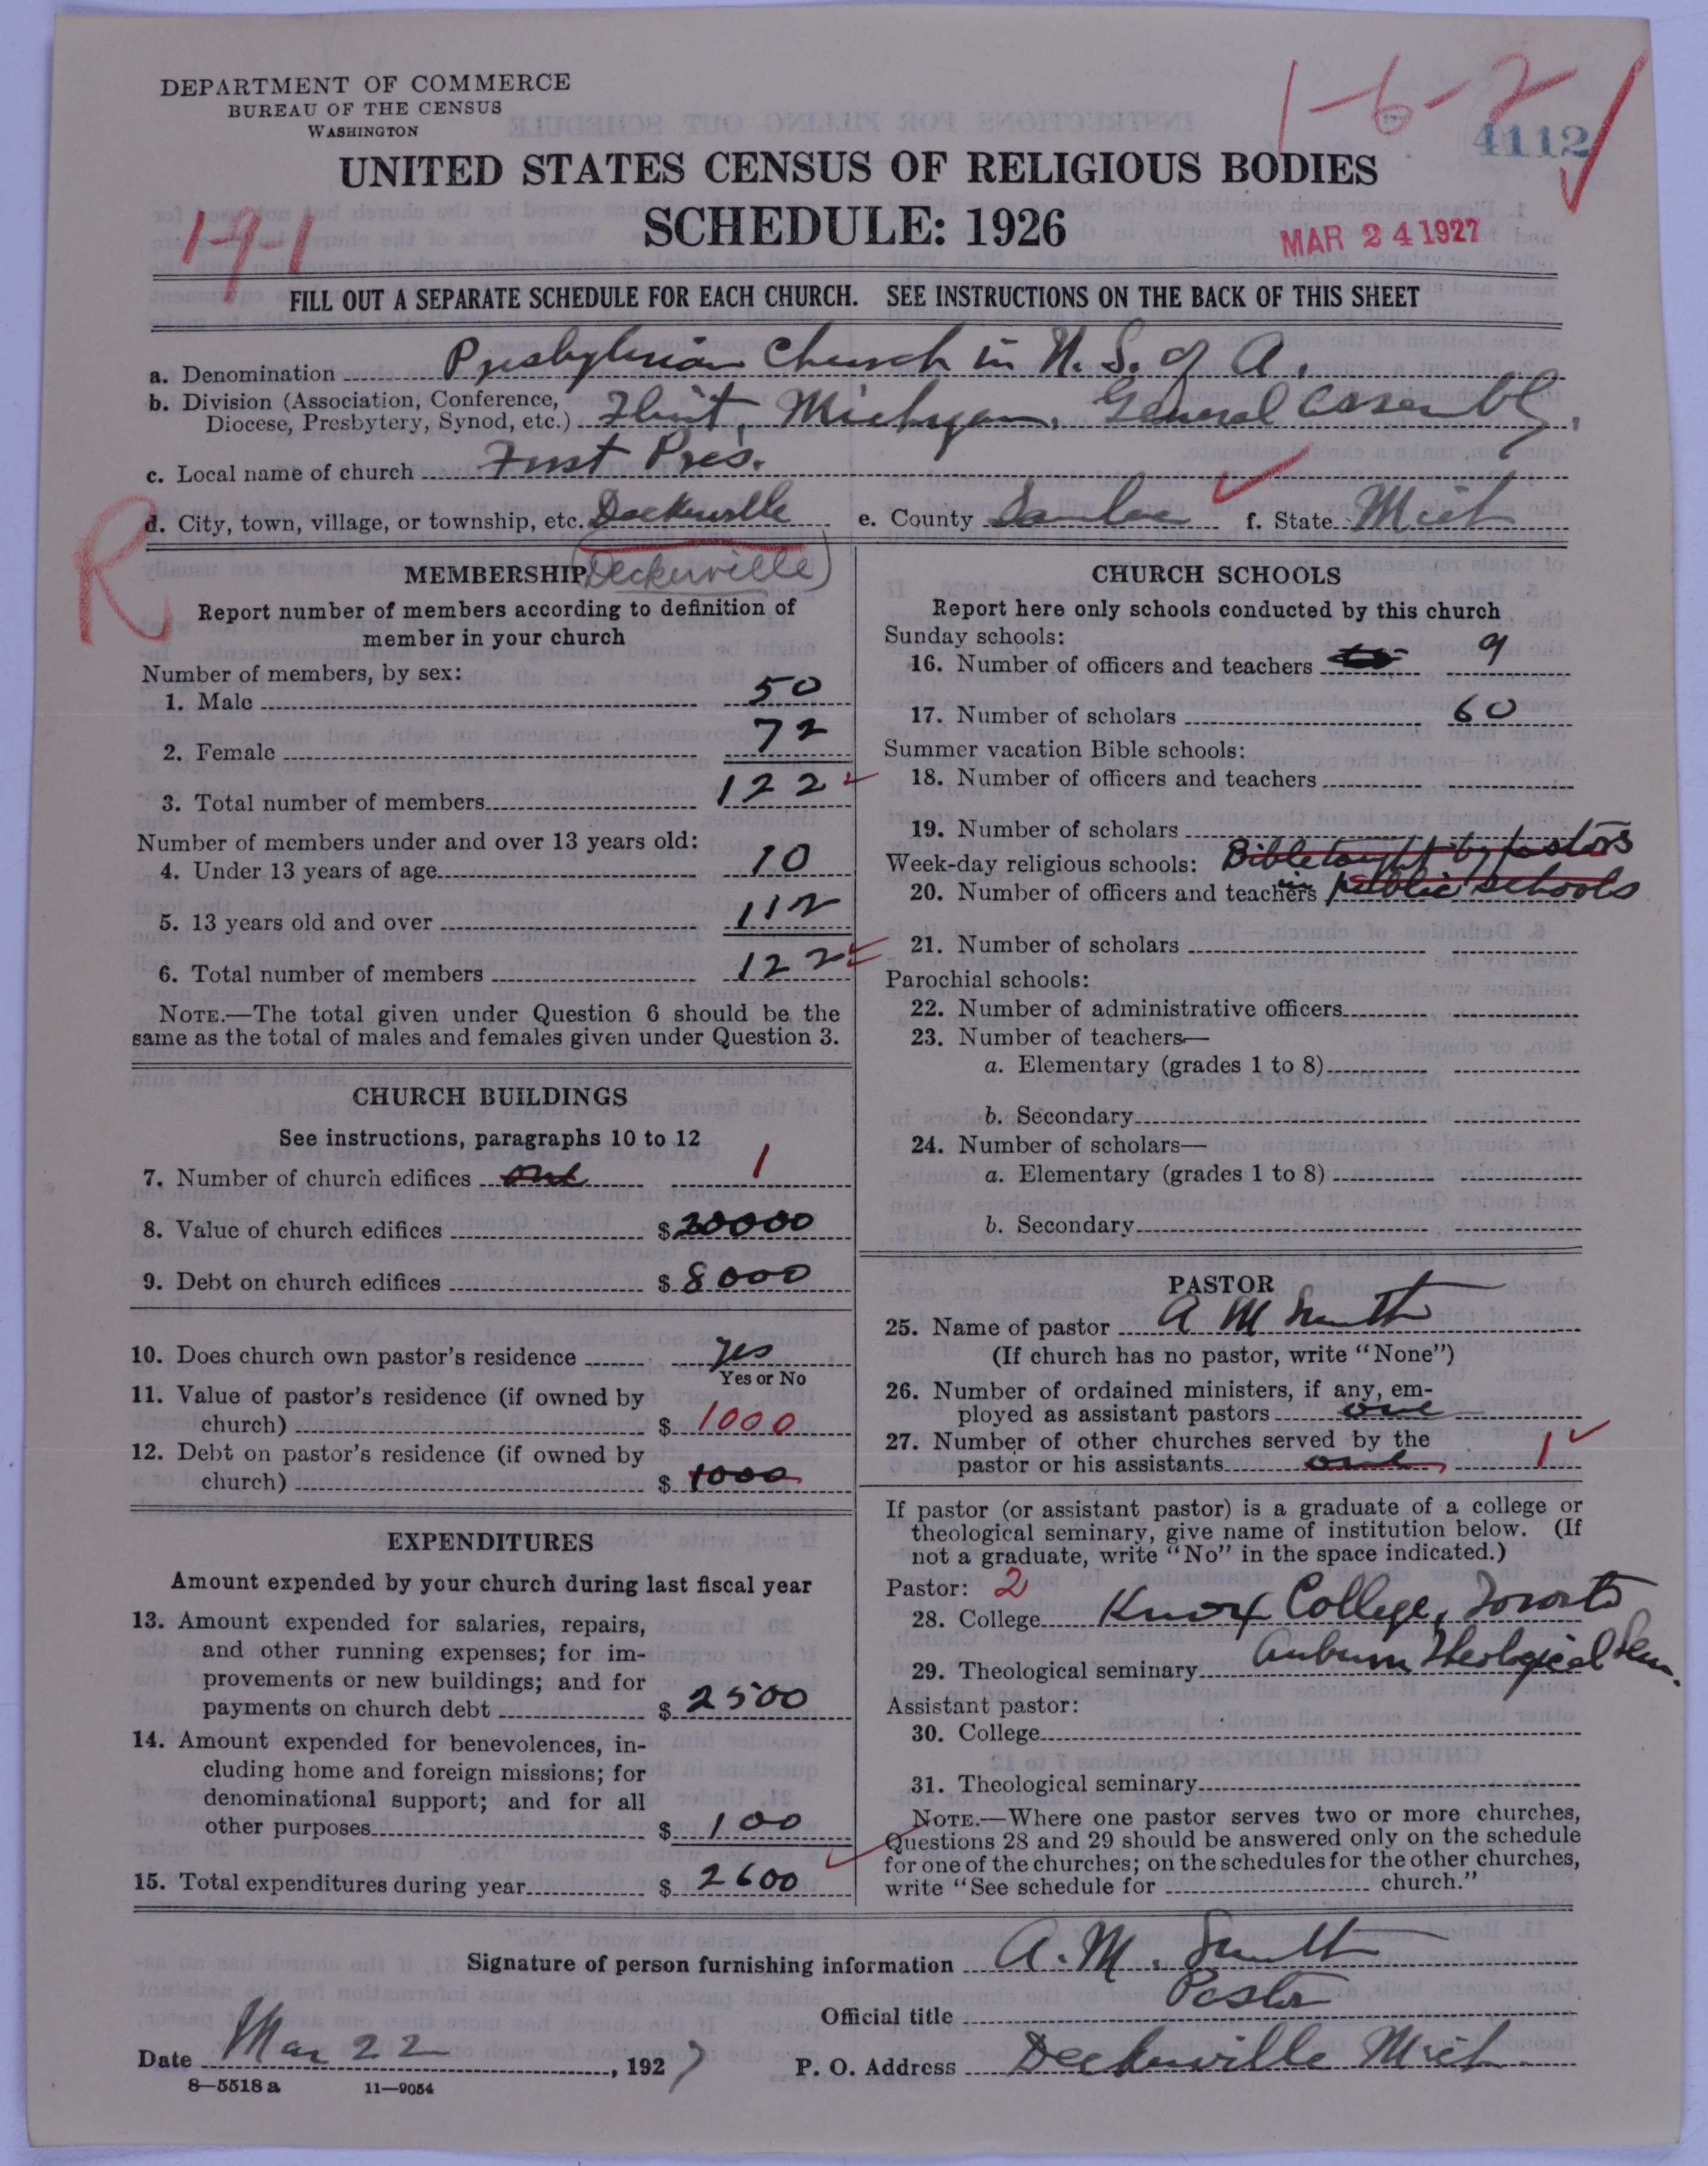 DEPARTMENT OF COMMERCE
BUREAU OF THE CENSUS
WASHINGTON
1-6-2
4112
UNITED STATES CENSUS OF RELIGIOUS BODIES
SCHEDULE: 1926
19-1
MAR 24 1927
FILL OUT A SEPARATE SCHEDULE FOR EACH CHURCH. SEE INSTRUCTIONS ON THE BACK OF THIS SHEET
a. Denomination Presbyterian Church in U. S. of A.
b. Division (Association, Conference, Diocese, Presbytery, Synod, etc.) Flint, Michigan, General Assembly,
c. Local name of church First Pres.
d. City, town, village, or township, etc. Deckerville e. County Sanilac f. State Mich
R
MEMBERSHIP (Deckerville)
Report number of members according to definition of
member in your church
Number of members, by sex:
1. Male 50
2. Female 72
3. Total number of members 122
Number of members under and over 13 years old:
4. Under 13 years of age 10
5. 13 years old and over 112
6. Total number of members 122
NOTE.—The total given under Question 6 should be the
same as the total of males and females given under Question 3.
CHURCH BUILDINGS
See instructions, paragraphs 10 to 12
7. Number of church edifices one 1
8. Value of church edifices $ 20000
9. Debt on church edifices $ 8000
10. Does church own pastor's residence yes
Yes or No
11. Value of pastor's residence (if owned by
church) $ 1000
12. Debt on pastor's residence (if owned by
church) $ 1000
EXPENDITURES
Amount expended by your church during last fiscal year
13. Amount expended for salaries, repairs,
and other running expenses; for im-
provements or new buildings; and for
payments on church debt $ 2500
14. Amount expended for benevolences, in-
cluding home and foreign missions; for
denominational support; and for all
other purposes $ 100
15. Total expenditures during year $ 2600
CHURCH SCHOOLS
Report here only schools conducted by this church
Sunday schools:
16. Number of officers and teachers 9
17. Number of scholars 60
Summer vacation Bible schools:
18. Number of officers and teachers
19. Number of scholars
Week-day religious schools: Bible taught by pastors
20. Number of officers and teachers in public schools
21. Number of scholars
Parochial schools:
22. Number of administrative officers
23. Number of teachers—
a. Elementary (grades 1 to 8)
b. Secondary
24. Number of scholars—
a. Elementary (grades 1 to 8)
b. Secondary
PASTOR
25. Name of pastor A M Smith
(If church has no pastor, write "None")
26. Number of ordained ministers, if any, em-
ployed as assistant pastors one
27. Number of other churches served by the
pastor or his assistants one 1
If pastor (or assistant pastor) is a graduate of a college or
theological seminary, give name of institution below. (If
not a graduate, write "No" in the space indicated.)
Pastor: 2
28. College Knox College, Toronto
29. Theological seminary Auburn Theological Sem.
Assistant pastor:
30. College
31. Theological seminary
NOTE.—Where one pastor serves two or more churches,
Questions 28 and 29 should be answered only on the schedule
for one of the churches; on the schedules for the other churches,
write "See schedule for church."
Signature of person furnishing information A. M. Smith
Official title Pastor
Date Mar 22, 1927 P. O. Address Deckerville Mich
8—5518 a 11—9054